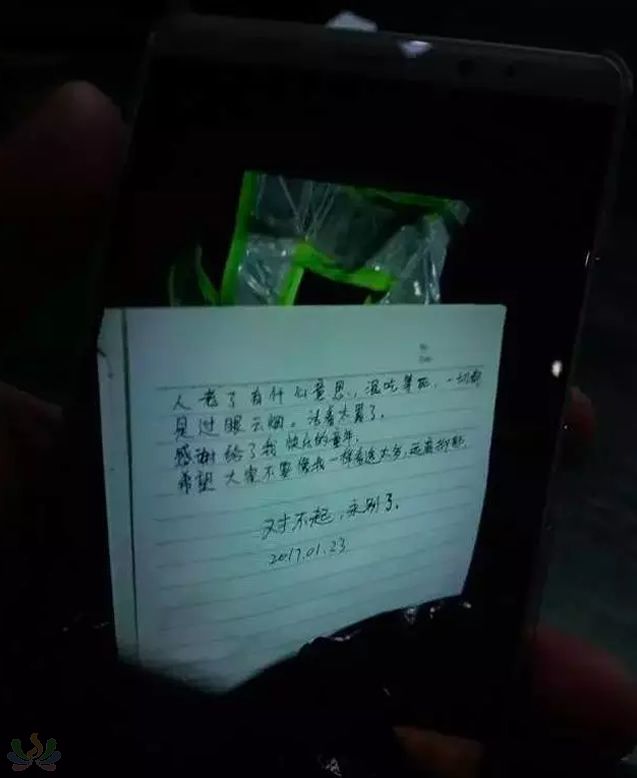 No
Date
人老了有什么意思,混吃等死,一切都
是过眼云烟。活着太累了。
感谢给了我快乐的童年,
希望大家不要像我一样看透太多,远离抑郁.
对不起,永别了.
2017.01.23